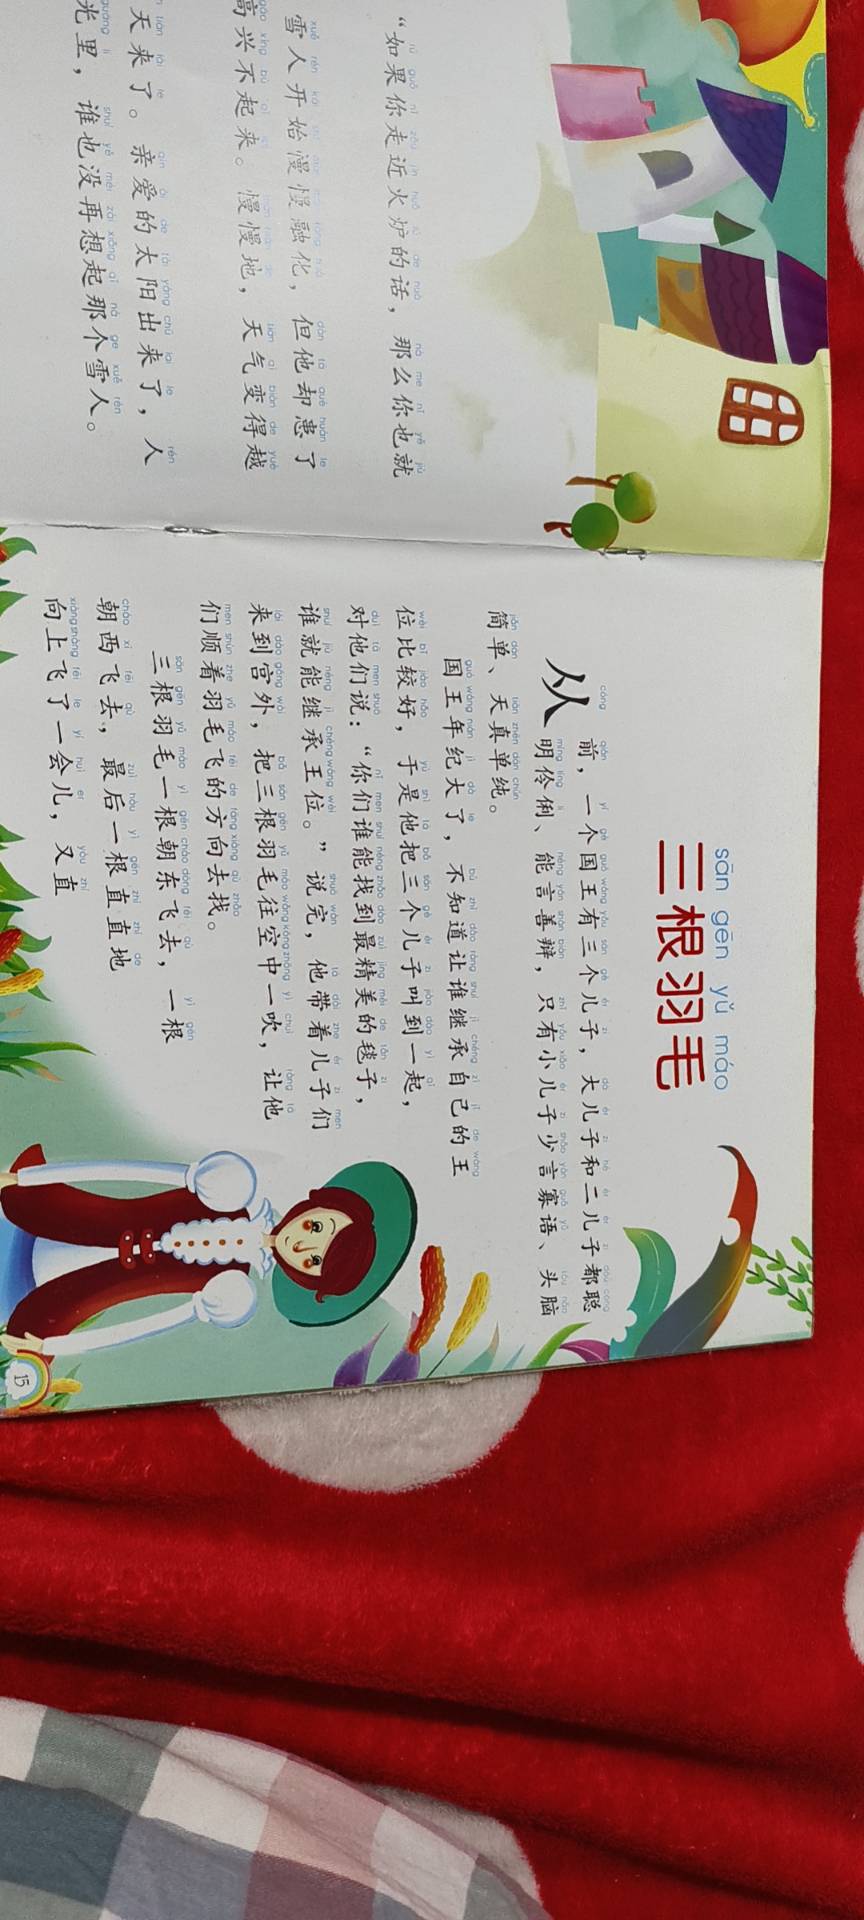 “如果你走近火炉的话，那么你也就
雪人开始慢慢融化，但他却患了
高兴不起来。慢慢地，天气变得越
天来了。亲爱的太阳出来了，人
光里，谁也没再想起那个雪人。
sān gēn yǔ máo
三根羽毛
从前，一个国王有三个儿子，大儿子和二儿子都聪
明伶俐、能言善辩，只有小儿子少言寡语、头脑
简单、天真单纯。
国王年纪大了，不知道让谁继承自己的王
位比较好，于是他把三个儿子叫到一起，
对他们说：“你们谁能找到最精美的毯子，
谁就能继承王位。”说完，他带着儿子们
来到宫外，把三根羽毛往空中一吹，让他
们顺着羽毛飞的方向去找。
三根羽毛一根朝东飞去，一根
朝西飞去，最后一根直直地
向上飞了一会儿，又直
15